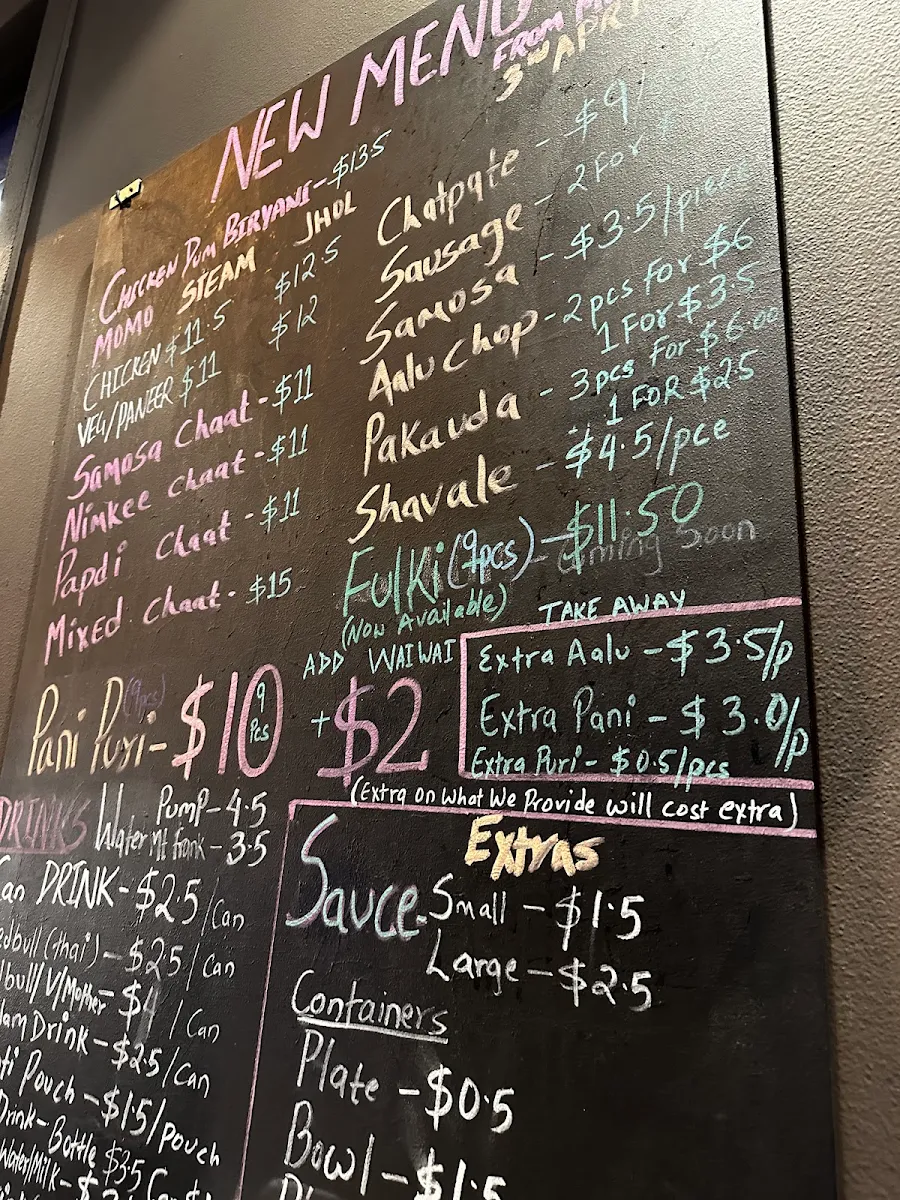 NEW MENU
FROM
3RD APRI
CHICKEN DUM BIRYANI - $13.5
MOMO STEAM JHOL
CHICKEN $11.5 $12.5
VEG/PANEER $11 $12
Samosa Chaat - $11
Nimkee chaat - $11
Papdi Chaat - $11
Mixed Chaat - $15
Chatpate - $9/
Sausage - 2 For
Samosa - $3.5/piece
Aalu Chop - 2pcs For $6
1 For $3.5
Pakauda - 3pcs For $6.00
1 FOR $2.5
Shavale - $4.5/pce
Fulki (9pcs) - $11.50
Coming Soon
(Now Available)
Pani Puri (9pcs) - $10 9 Pcs
ADD WAIWAI
+ $2
TAKE AWAY
Extra Aalu - $3.5/p
Extra Pani - $3.0/p
Extra Puri - $0.5/pcs
(Extra on what We Provide will cost extra)
DRINKS Water Pump - 4.5
Mt frank - 3.5
an DRINK - $2.5/Can
edbull (thai) - $2.5/Can
lbull/V/Mother - $4/Can
am Drink - $2.5/Can
ti Pouch - $1.5/pouch
Drink - Bottle $3.5
Water/Milk - $
Extras
Sauce - Small - $1.5
Large - $2.5
Containers
Plate - $0.5
Bowl - $1.5